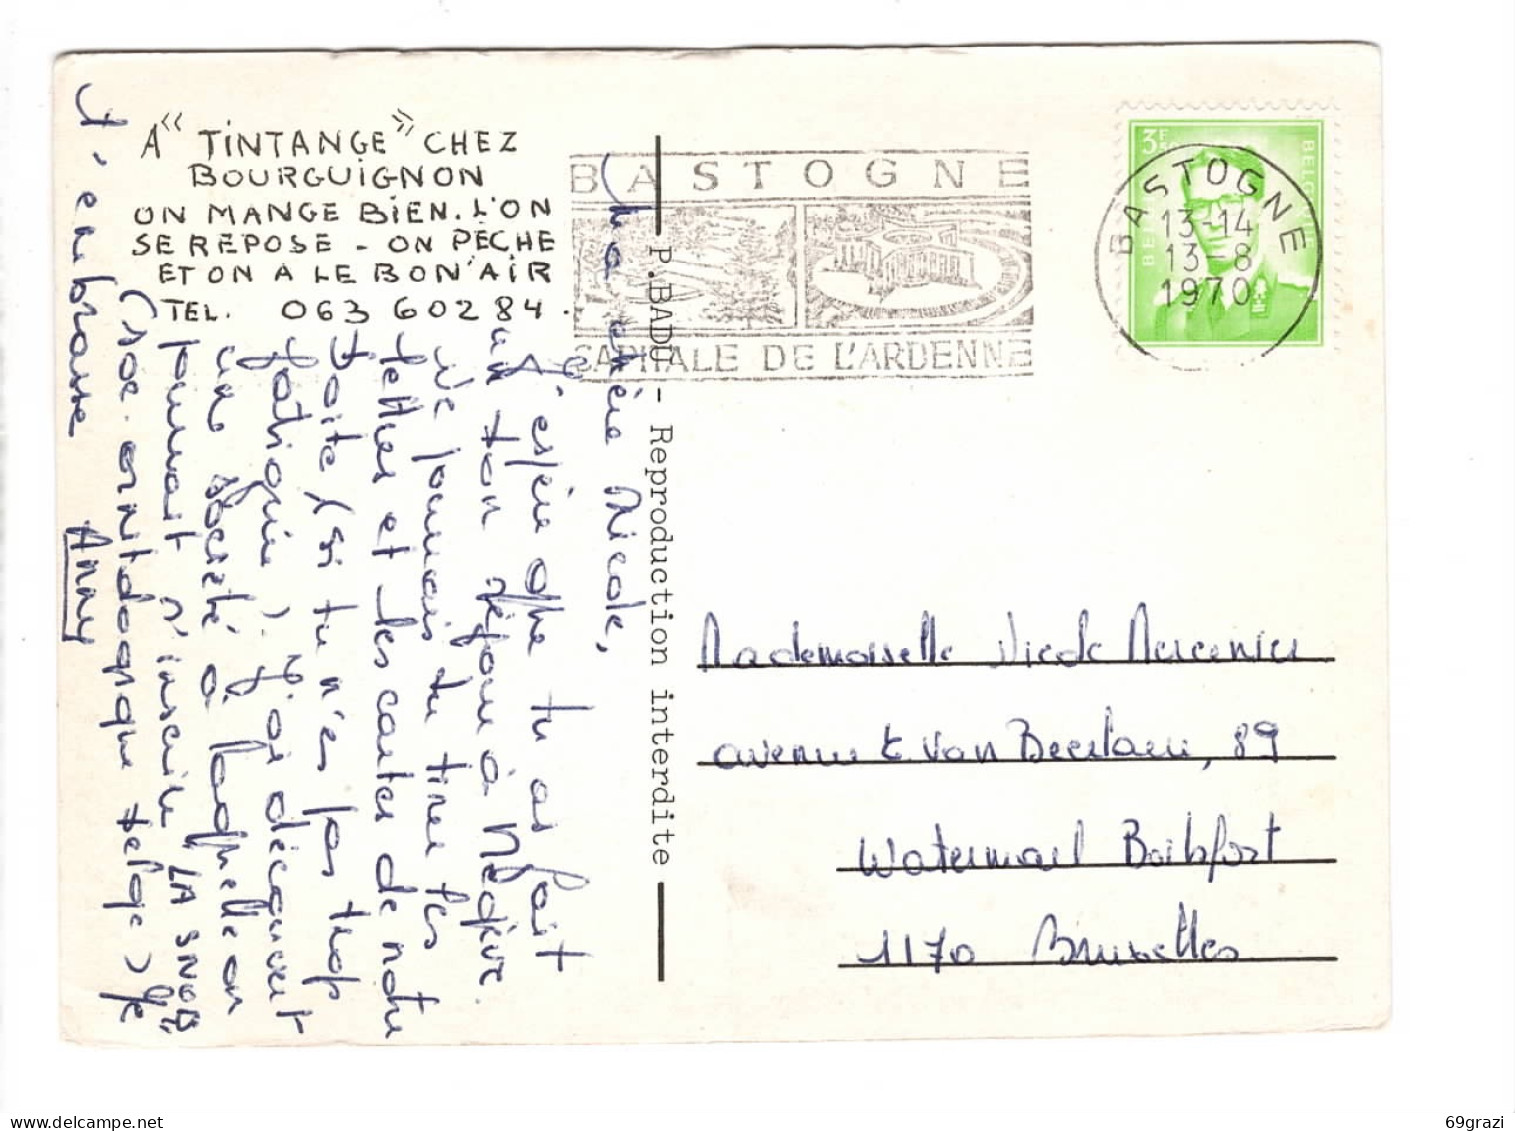 A "TINTANGE" CHEZ
BOURGUIGNON
ON MANGE BIEN. L'ON
SE REPOSE - ON PÊCHE
ET ON A LE BON'AIR
TEL. 063 60284.
BASTOGNE
CAPITALE DE L'ARDENNE
3F 50
BELGIE
BASTOGNE
13-14
13-8
1970
P. BADU - Reproduction interdite
Ma chère Nicole,
J'espère que tu as fait
un bon séjour à
Ne pourrais tu tirer les
lettres et les cartes de notre
boîte (si tu n'es pas trop
fatiguée). J'ai découvert
une société à laquelle on
pourrait s'inscrire "LA SNOB"
(soc. ornithologique belge) Je
t'embrasse Anny
Mademoiselle Nicole Mercenier
avenue E. Van Becelaere, 89
Watermael Boitsfort
1170 Bruxelles
69grazi